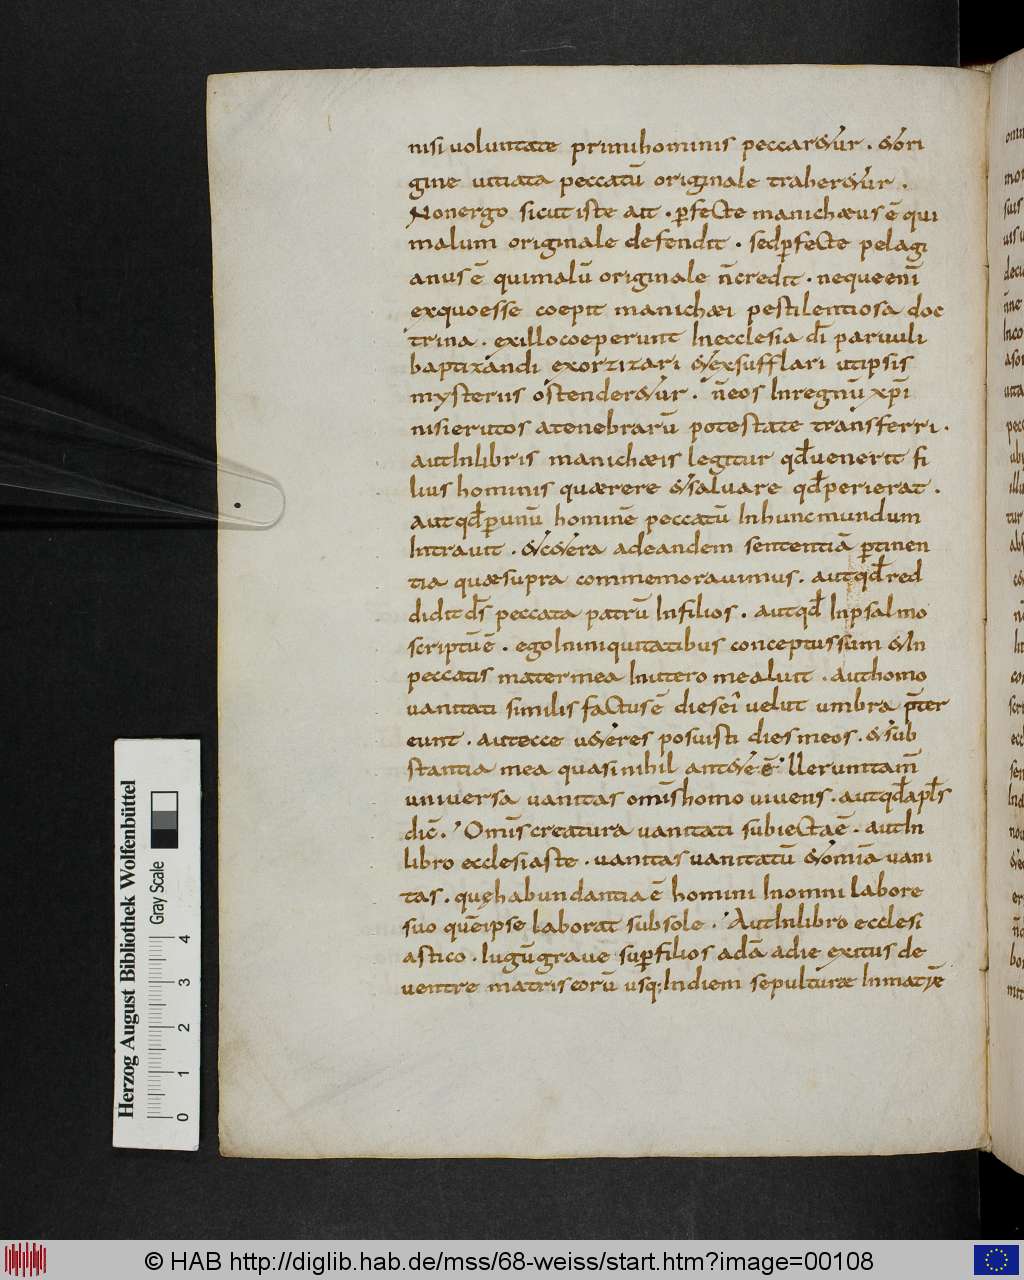 nisi uoluntate primi hominis peccar&ur . & ori
gine uitiata peccatū originale traher&ur .
Non ergo sicut iste ait . ꝑfecte manichæus ē qui
malum originale defendit . sed ꝑfecte pelagi
anus ē qui malū originale n̄ credit . neque enī
ex quo esse coepit manichæi pestilentiosa doc
trina . ex illo coeperunt In ecclesia dī paruuli
baptizandi exorzizari & exsufflari ut ipsis
mysteriis ostender&ur . n̄ eos In regnū xp̄i
nisi erutos a tenebrarū potestate transferri .
aut In libris manichæis legitur qđ uenerit fi
lius hominis quærere & saluare qđ perierat .
aut qđ ꝑ unū hominē peccatū In hunc mundum
Intrauit . & c&era ad eandem sententiā ꝑtinen
tia quæ supra commemorauimus . aut qđ red
didit ds̄ peccata patrū In filios . aut qđ In psalmo
scriptū ē . ego In iniquitatibus conceptus sum & In
peccatis mater mea In utero me aluit . aut homo
uanitati similis factus ē dies eī uelut umbra p̄ter
eunt . aut ecce u&eres posuisti dies meos . & sub
stantia mea quasi nihil ant& e ē Ueruntam̄
uniuersa uanitas omīs homo uiuens . aut qđ apłs
dic̄ . Omīs creatura uanitati subiecta ē . aut In
libro ecclesiaste . uanitas uanitatū & omīa uani
tas . quę habundantia ē homini In omni labore
suo quē ipse laborat sub sole . Aut In libro ecclesi
astico . Iugū graue suꝑ filios adā a die exitus de
uentre matris eorū usq; In diem sepulturæ In matrē
Herzog August Bibliothek Wolfenbüttel
Gray Scale
0 1 2 3 4
© HAB http://diglib.hab.de/mss/68-weiss/start.htm?image=00108